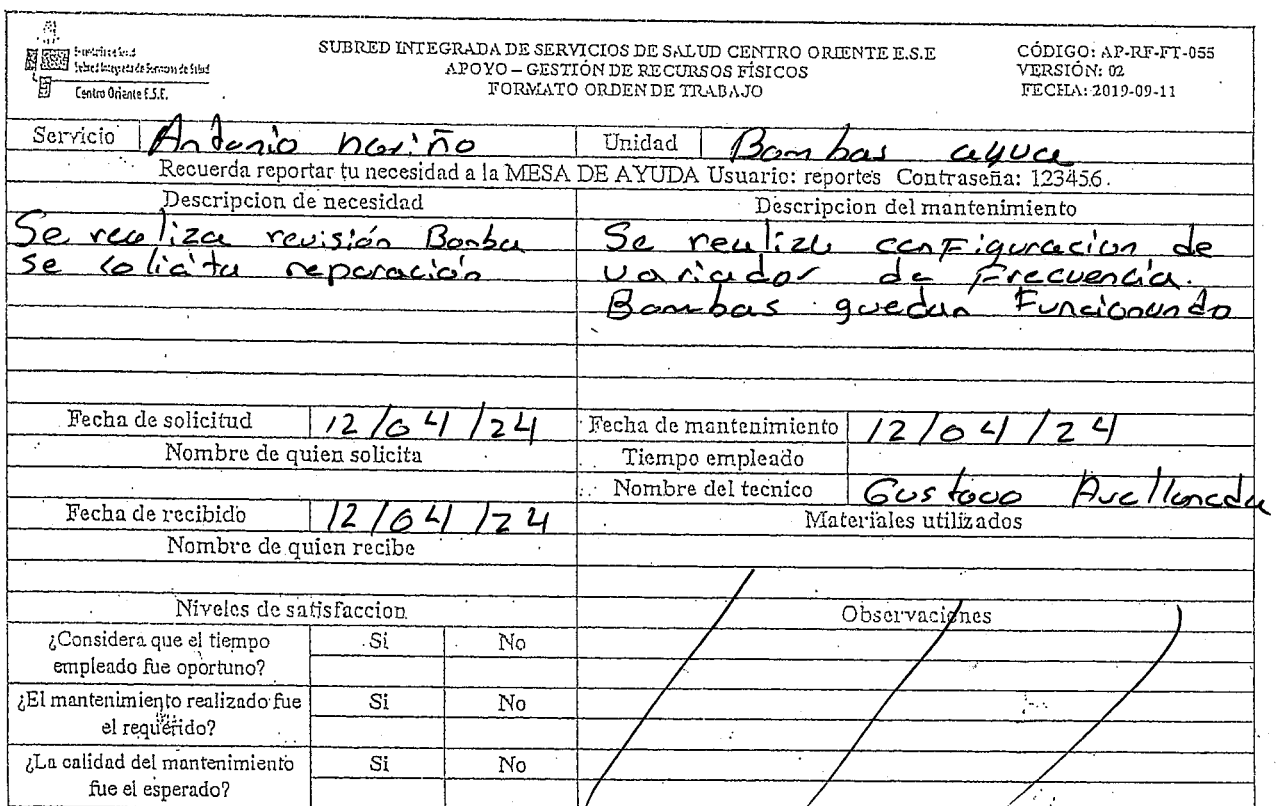 Centro Oriente E.S.E.
SUBRED INTEGRADA DE SERVICIOS DE SALUD CENTRO ORIENTE E.S.E
APOYO – GESTIÓN DE RECURSOS FÍSICOS
FORMATO ORDEN DE TRABAJO
CÓDIGO: AP-RF-FT-055
VERSIÓN: 02
FECHA: 2019-09-11
Servicio Antonio nariño Unidad Bombas agua
Recuerda reportar tu necesidad a la MESA DE AYUDA Usuario: reportes Contraseña: 123456.
Descripcion de necesidad
Se realiza revisión Bomba
se solicita reparación
Descripcion del mantenimiento
Se realiza configuracion de
variador de Frecuencia.
Bombas quedan Funcionando
Fecha de solicitud 12/04/24 Fecha de mantenimiento 12/04/24
Nombre de quien solicita Tiempo empleado
Nombre del tecnico Gustavo Avellaneda
Fecha de recibido 12/04/24 Materiales utilizados
Nombre de quien recibe
Niveles de satisfaccion Observaciones
¿Considera que el tiempo
empleado fue oportuno?
Si No
¿El mantenimiento realizado fue
el requerido?
Si No
¿La calidad del mantenimiento
fue el esperado?
Si No